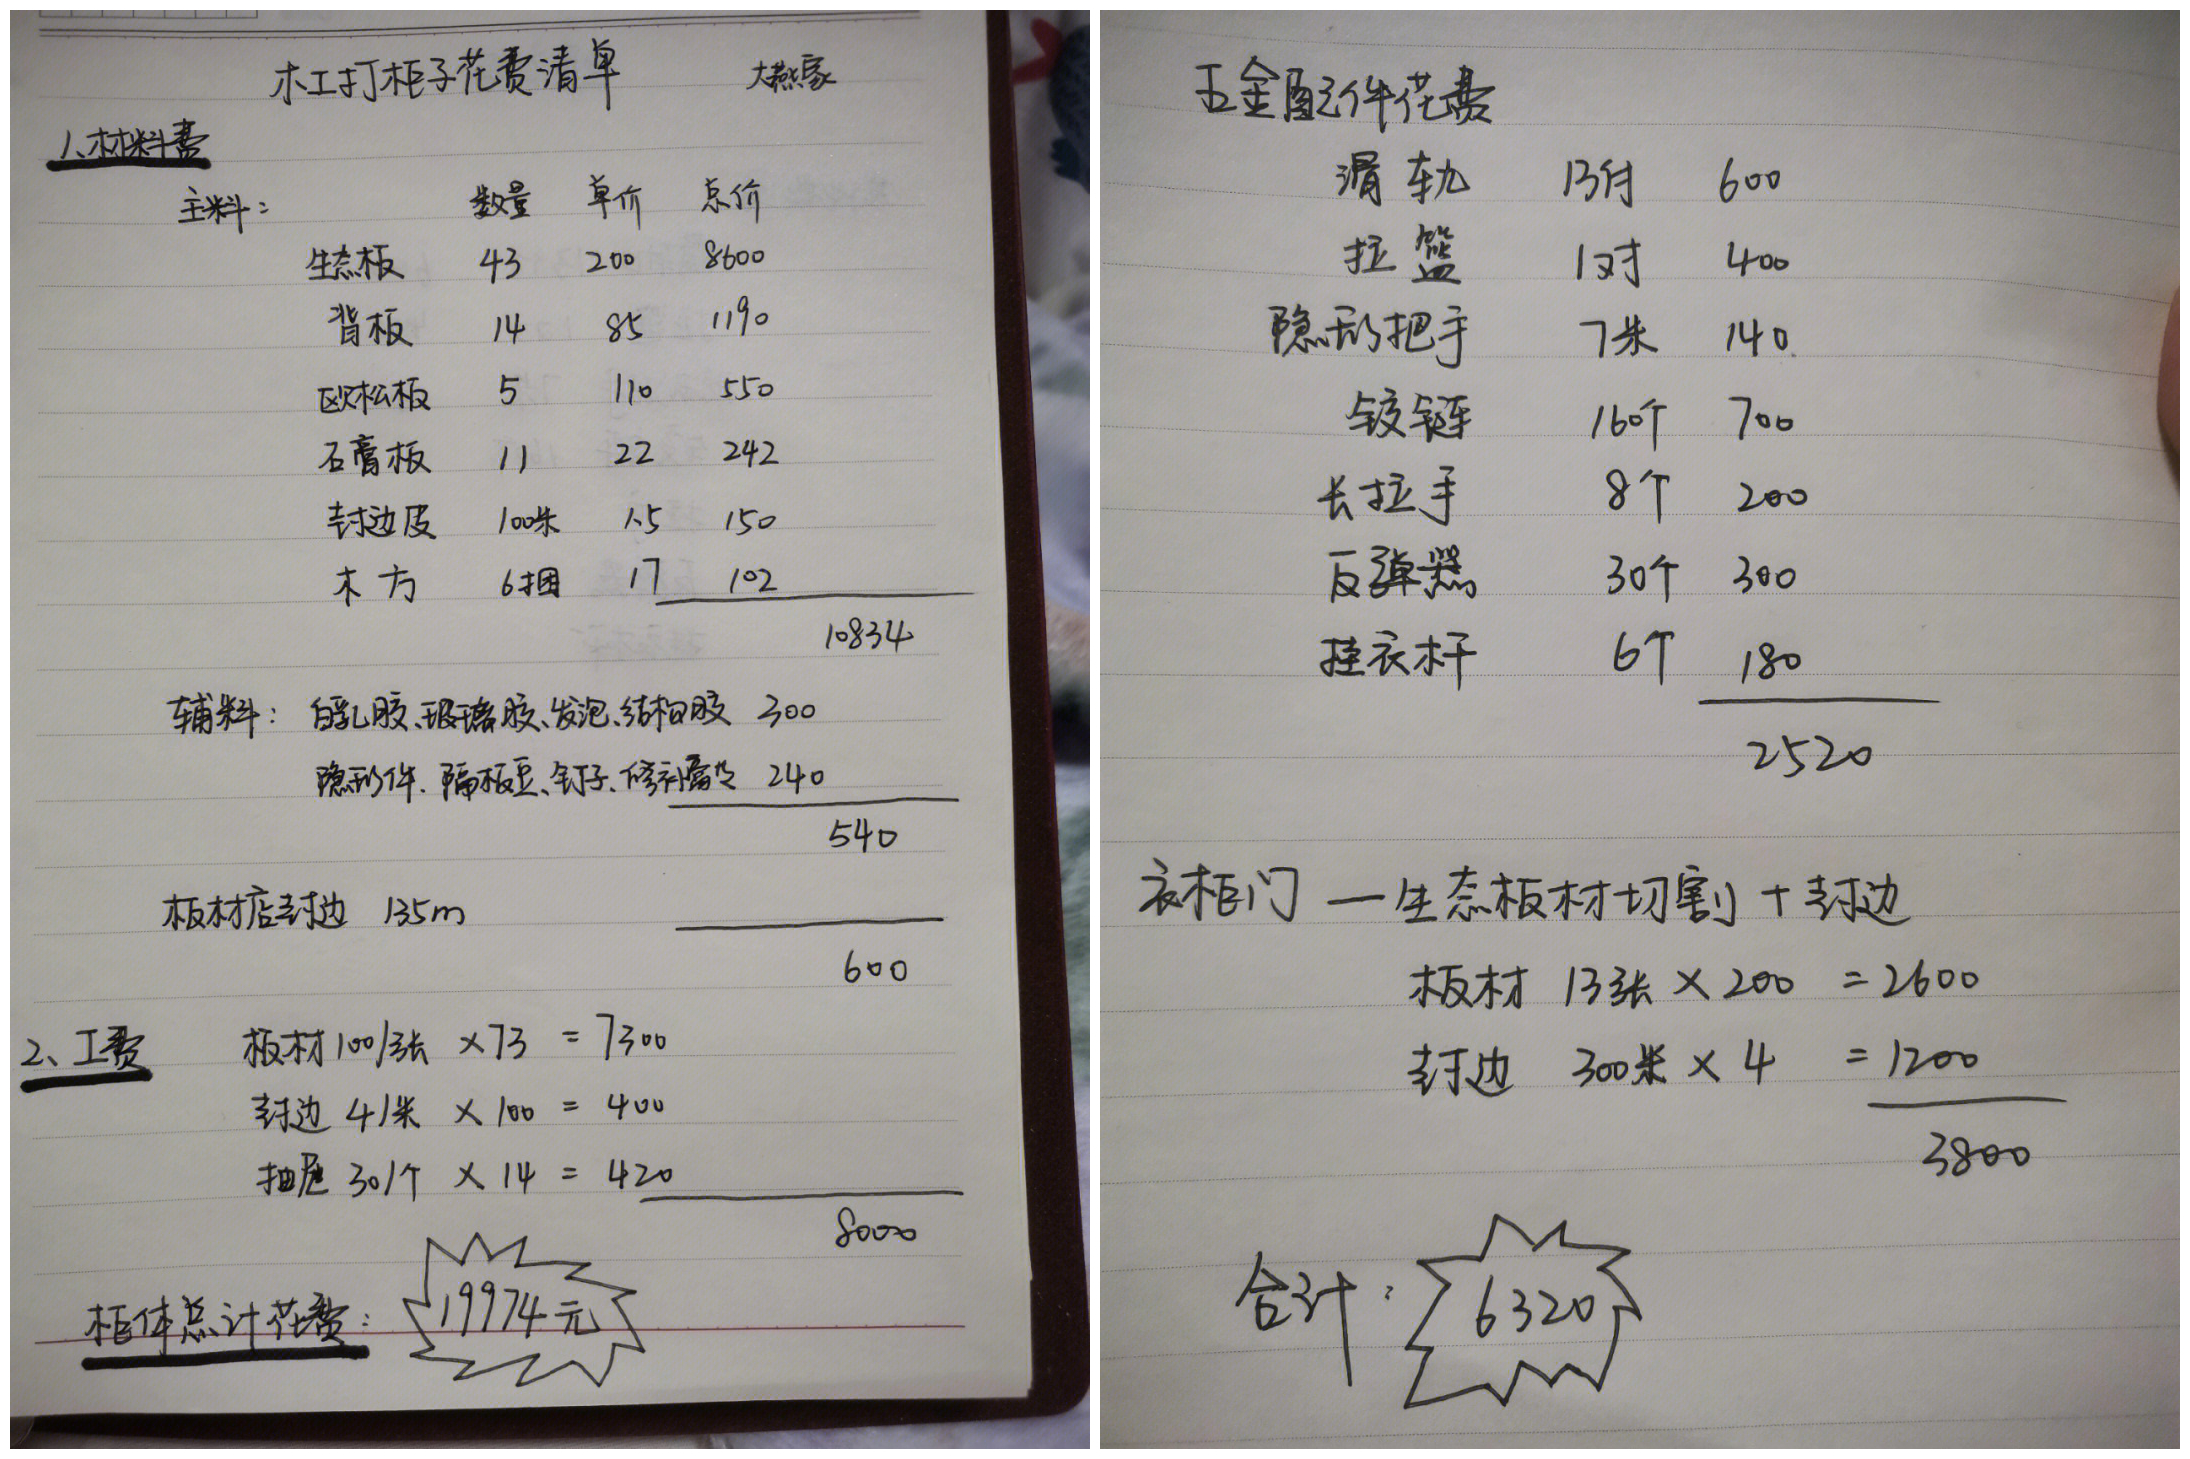 木工打柜子花费清单 大燕家
1、材料费
主料: 数量 单价 总价
生态板 43 200 8600
背板 14 85 1190
欧松板 5 110 550
石膏板 11 22 242
封边皮 100米 1.5 150
木方 6捆 17 102
10834
辅料: 白乳胶、玻璃胶、发泡、结构胶 300
隐形件、隔板豆、钉子、修补膏 240
540
板材店封边 135m
600
2、工费 板材100/张 ×73 = 7300
封边 4/米 ×100 = 400
抽屉 30/个 ×14 = 420
8000
柜体总计花费: 19974元
五金配件花费
滑轨 13付 600
拉篮 1对 400
隐形把手 7米 140
铰链 160个 700
长拉手 8个 200
反弹器 30个 300
挂衣杆 6个 180
2520
衣柜门 — 生态板材切割 + 封边
板材 13张 × 200 = 2600
封边 300米 × 4 = 1200
3800
合计: 6320